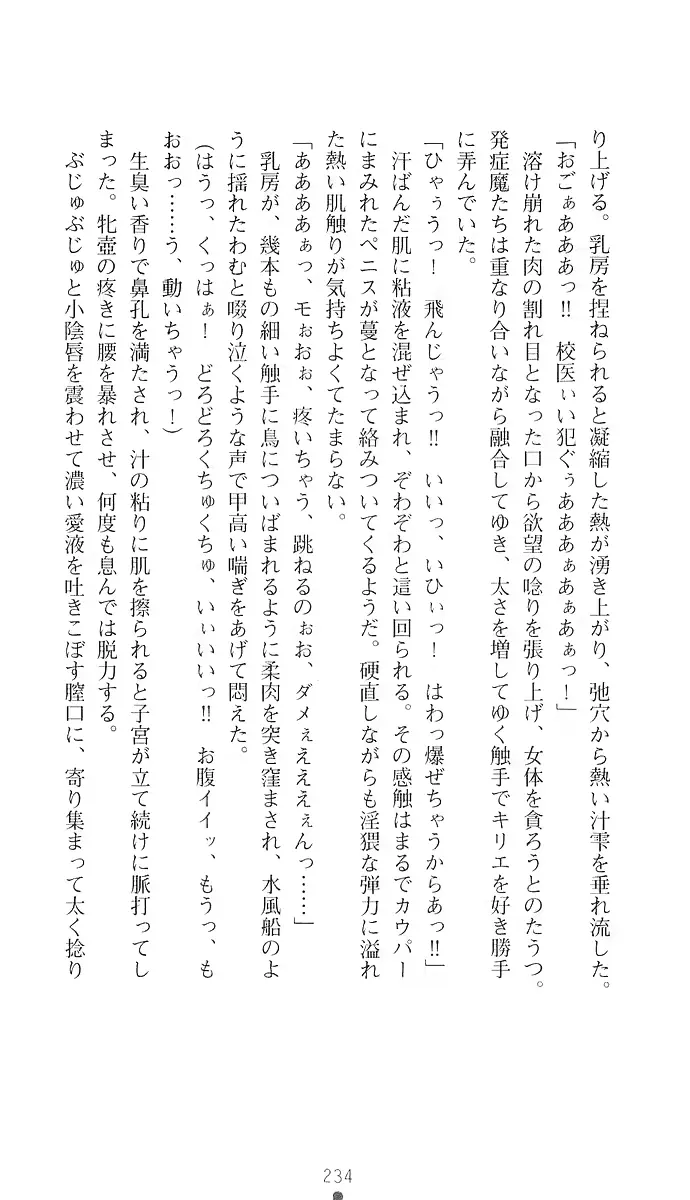 り上げる。乳房を捏ねられると凝縮した熱が湧き上がり、弛穴から熱い汁雫を垂れ流した。
「おごぁあああっ!! 校医ぃぃ犯ぐぅあああぁあぁあぁっ！」
溶け崩れた肉の割れ目となった口から欲望の唸りを張り上げ、女体を貪ろうとのたうつ。
発症魔たちは重なり合いながら融合してゆき、太さを増してゆく触手でキリエを好き勝手
に弄んでいた。
「ひゃぅうっ！ 飛んじゃうっ!! いいっ、いひぃっ！ はわっ爆ぜちゃうからあっ!!」
汗ばんだ肌に粘液を混ぜ込まれ、ぞわぞわと這い回られる。その感触はまるでカウパー
にまみれたペニスが蔓となって絡みついてくるようだ。硬直しながらも淫猥な弾力に溢れ
た熱い肌触りが気持ちよくてたまらない。
「ああああぁっ、モぉおぉ、疼いちゃう、跳ねるのぉお、ダメぇえええぇんっ……」
乳房が、幾本もの細い触手に鳥についばまれるように柔肉を突き窪まされ、水風船のよ
うに揺れたわむと啜り泣くような声で甲高い喘ぎをあげて悶えた。
(はうっ、くっはぁ！ どろどろくちゅくちゅ、いぃいいっ!! お腹イイッ、もうっ、も
おおっ……う、動いちゃうっ！)
生臭い香りで鼻孔を満たされ、汁の粘りに肌を擦られると子宮が立て続けに脈打ってし
まった。牝壺の疼きに腰を暴れさせ、何度も息んでは脱力する。
ぶじゅぶじゅと小陰唇を震わせて濃い愛液を吐きこぼす膣口に、寄り集まって太く捻り
234